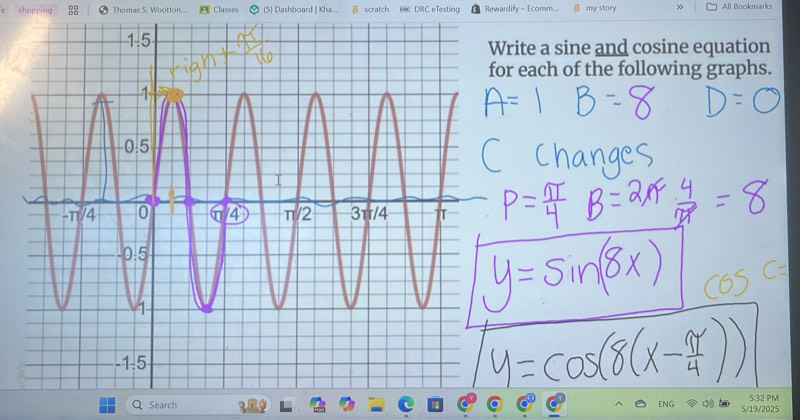 shopping
Thomas S. Wootton...
Classes
(5) Dashboard | Kha...
scratch
DRC eTesting
Rewardify – Ecomm...
my story
»
All Bookmarks
right π/16
1.5
1
0.5
-π/4
0
π/4
π/2
3π/4
π
-0.5
-1
-1.5
Write a sine and cosine equation
for each of the following graphs.
A=1 B=8 D=0
C changes
P=π/4 B=2π 4/π = 8
y=sin(8x)
cos C=
y=cos(8(x-π/4))
Search
ENG
5:32 PM
5/19/2025